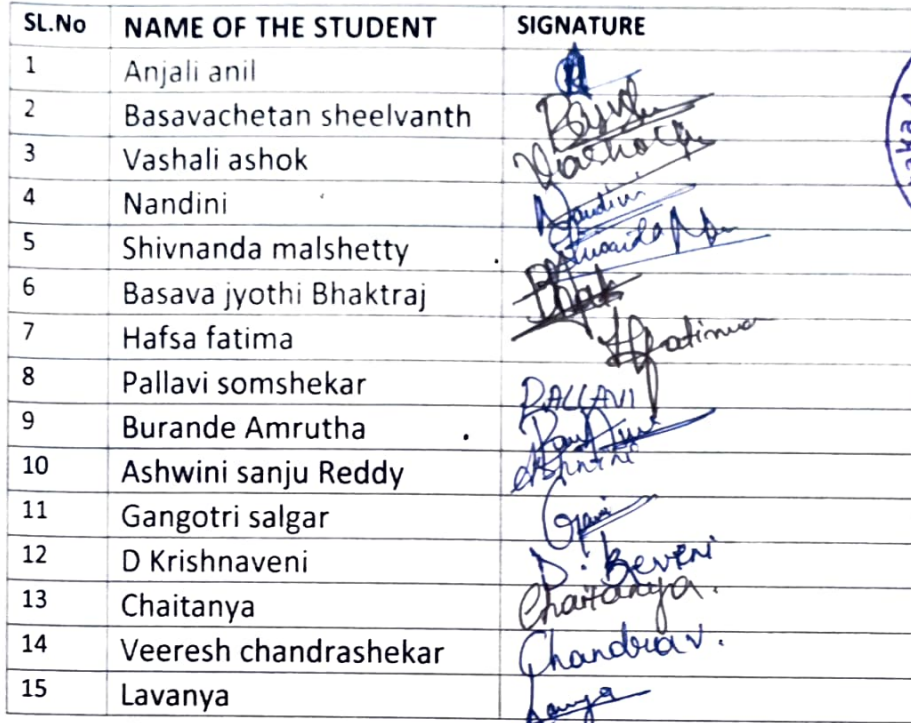 SL.No NAME OF THE STUDENT SIGNATURE
1 Anjali anil
2 Basavachetan sheelvanth
3 Vashali ashok
4 Nandini Nandini
5 Shivnanda malshetty
6 Basava jyothi Bhaktraj
7 Hafsa fatima Hfatima
8 Pallavi somshekar PALLAVI
9 Burande Amrutha
10 Ashwini sanju Reddy
11 Gangotri salgar
12 D Krishnaveni D.
13 Chaitanya Chaitanya.
14 Veeresh chandrashekar
15 Lavanya